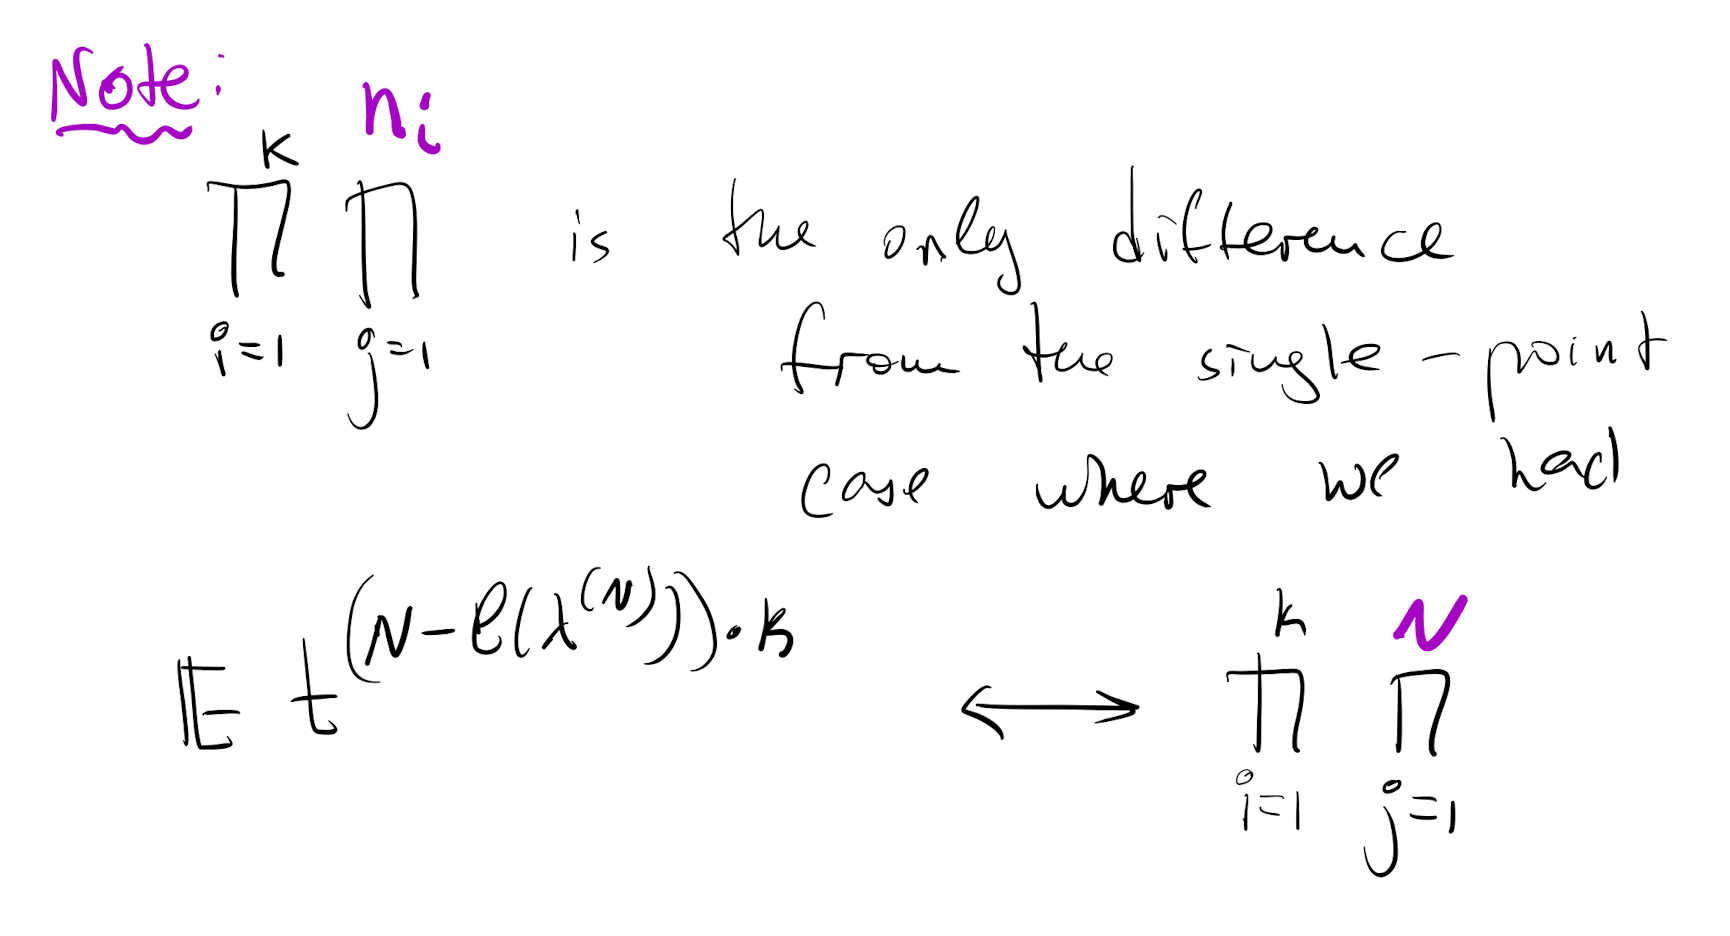 Note:
∏_{i=1}^{k} ∏_{j=1}^{n_i} is the only difference
from the single-point
case where we had
𝔼 t^{(N-ℓ(λ^{(N)}))·k} ⟷ ∏_{i=1}^{k} ∏_{j=1}^{N}